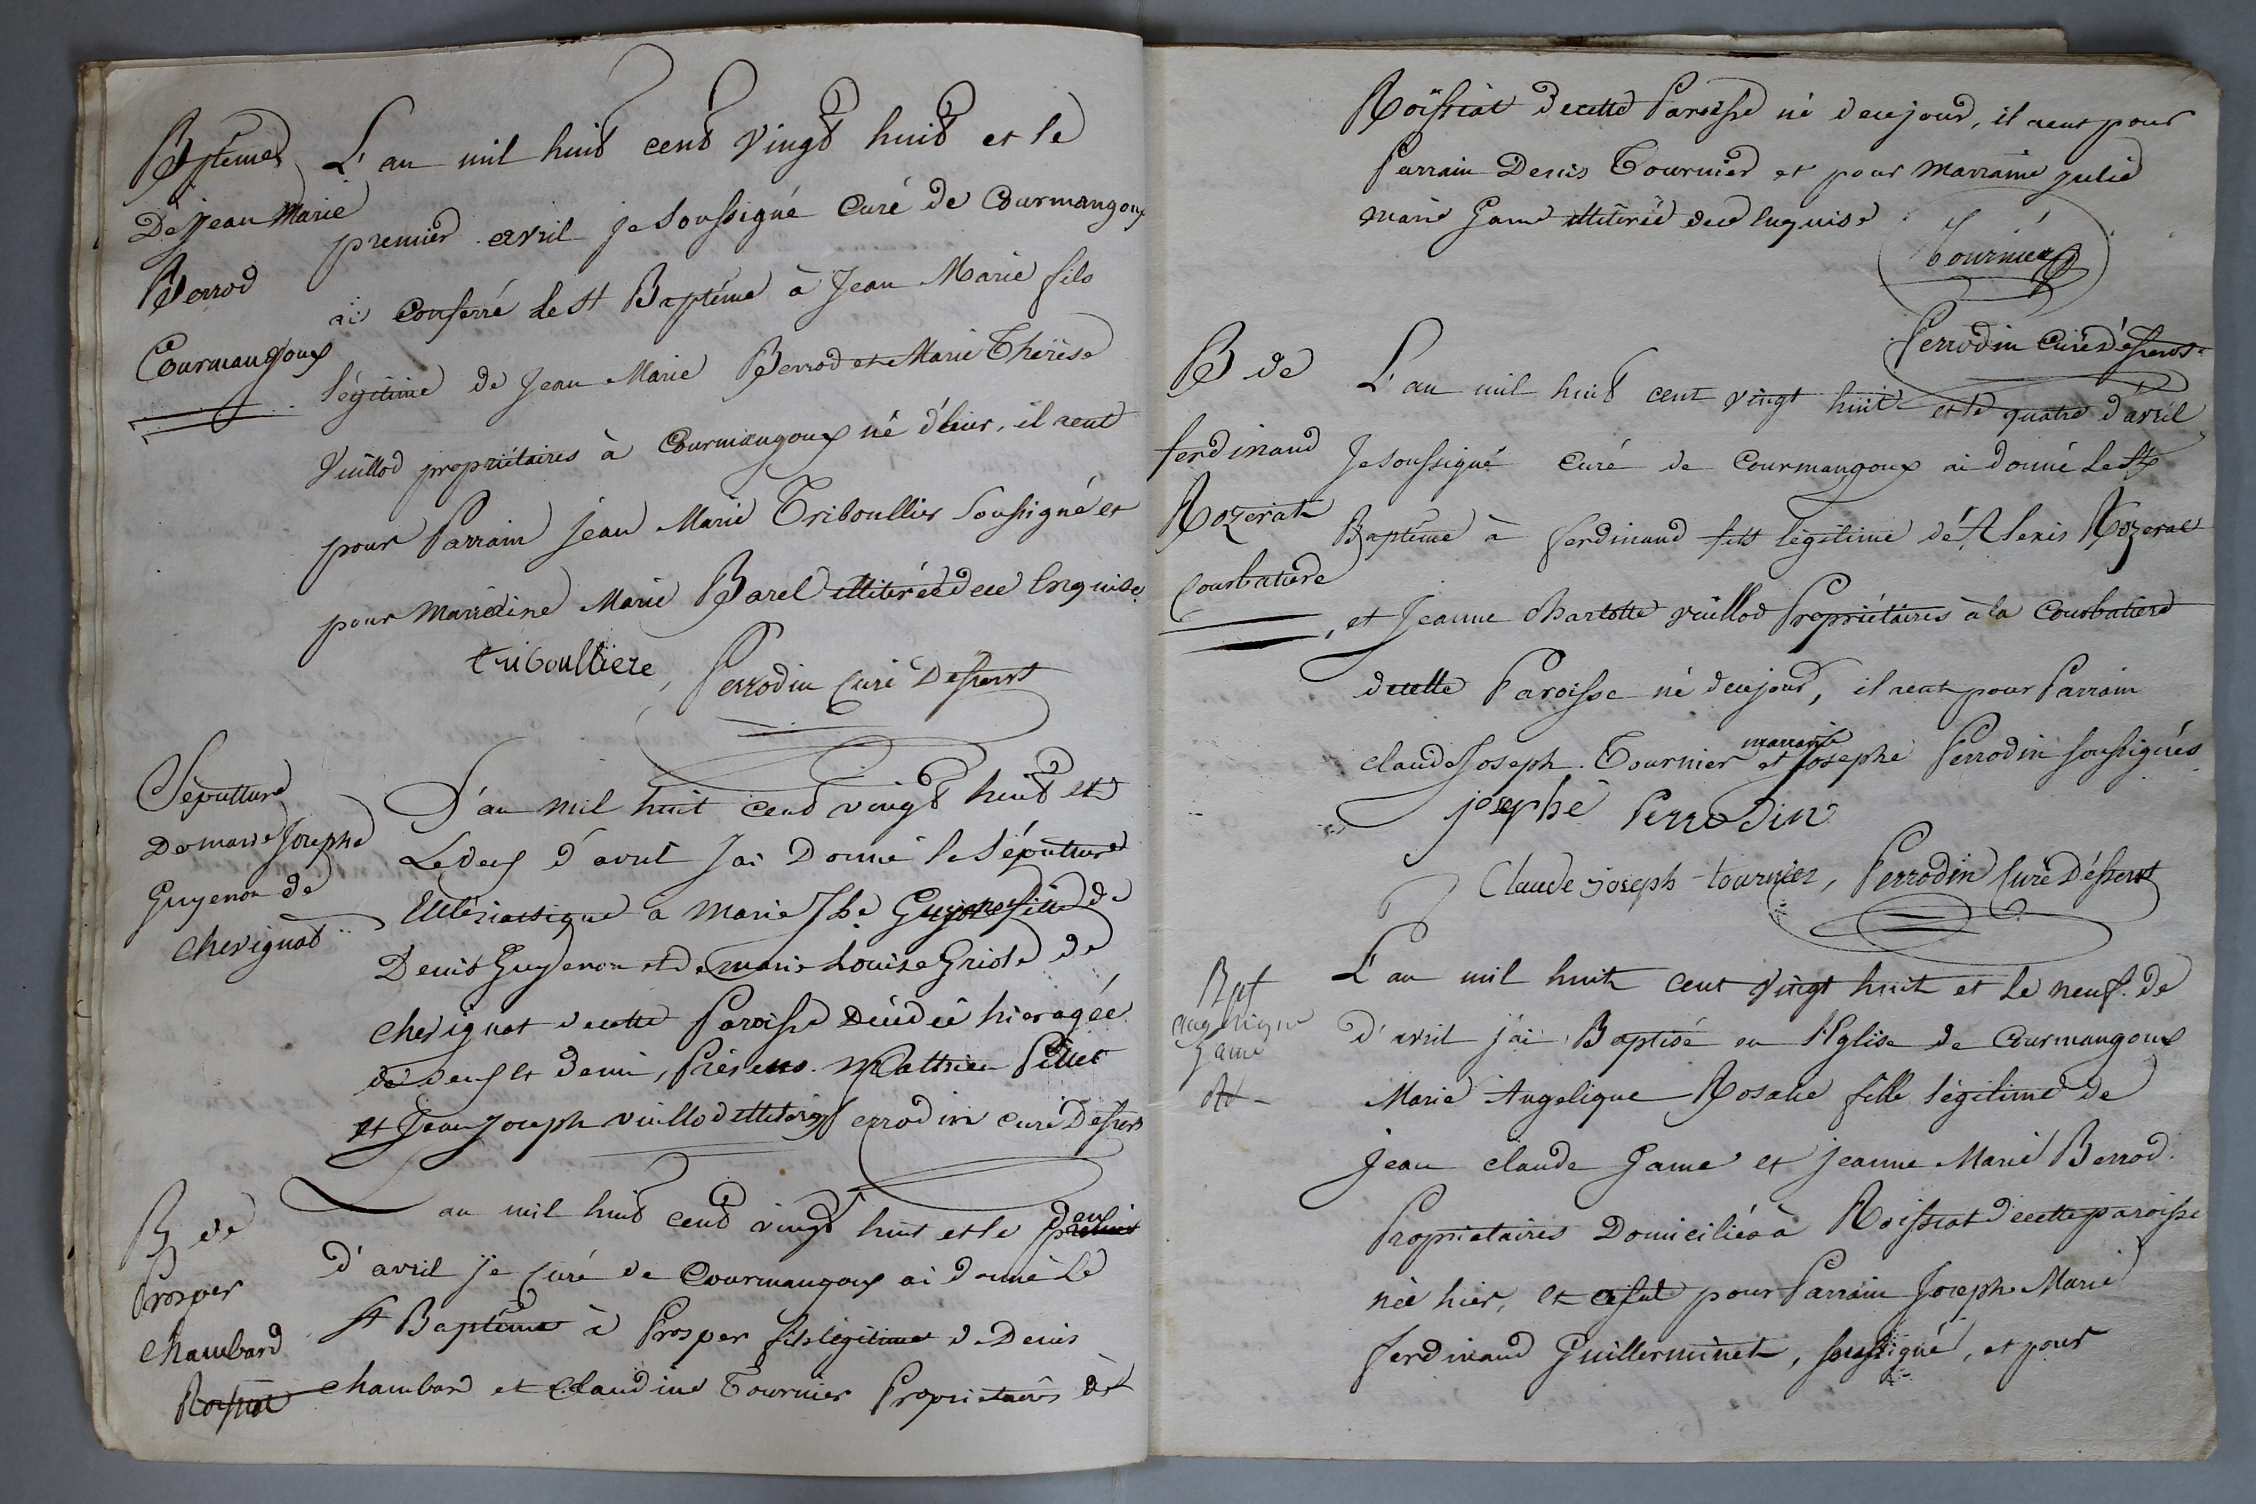 Bptême
De Jean Marie
Berrod
Courmangoux
L'an mil huit cent vingt huit et le
premier avril je soussigné Curé de Courmangoux
ai conferré le St Baptéme à Jean Marie fils
légitime de Jean Marie Berrod et Marie Thérèse
Vuillod propriétaires à Courmangoux né d'hier, il aeut
pour Parrain jean Marie Triboullier soussigné et
pour Marraine Marie Barel illitérée dece Enquise
triboulliere, Perrodin Curé Desserv
Sépulture
De marie Josephe
Guyenon de
chevignat
L'an mil huit cent vingt huit et
Le deux d'avril J'ai Donné la Sépulture
Ecclésiastique a marie Jhe Guyenon fille de
Denis Guyenon et de marie Louise Griole de
chevignat decette Paroisse Décédée hier agée
de deux et demi, Présens. Matthieu Pillet
et Jean Joseph vuillod illitérés Perrodin curé Desserv
B de
Prosper
Chambard
Roissiat
L'an mil huit cent vingt huit et le premier deux
d'avril je Curé de Courmangoux ai donné Le
St Baptême à Prosper fils légitime de Denis
Chambard et Claudine Tournier Propriétaires à
Roïssiat decette Paroisse né decejour, il aeut pour
Parrain Denis Tournier et pour Marraine julie
marie Game illitérée dece Enquise
Tournier
Perrodin Curé désserv.
B de
ferdinand
Rozerat
Courbatiere
L'an mil huit cent vingt huit et le quatre d'avril
Je soussigné Curé de Courmangoux ai donné Le St
Baptême à ferdinand fils légitime d'Alexis Rozerat
et Jeanne Charlotte vuillod Propriétaires à la Courbatiere
decette Paroisse né decejour, il aeut pour Parrain
marraine
claude Joseph Tournier et Josephe Perrodin soussignés
josephe Perrodin
Claude joseph tournier, Perrodin Curé Désserv
Bpt
angelique
Game
L'an mil huit cent vingt huit et le neuf de
d'avril j'ai Baptisé en l'Eglise de Courmangoux
Marie Angelique Rosalie fille légitime de
Jean claude Game et jeanne Marie Berrod.
Propriétaires Domiciliés à Roissiat decette paroisse
née hier, et pour Parrain Joseph Marie
ferdinand Guillerminet, soussigné, et pour